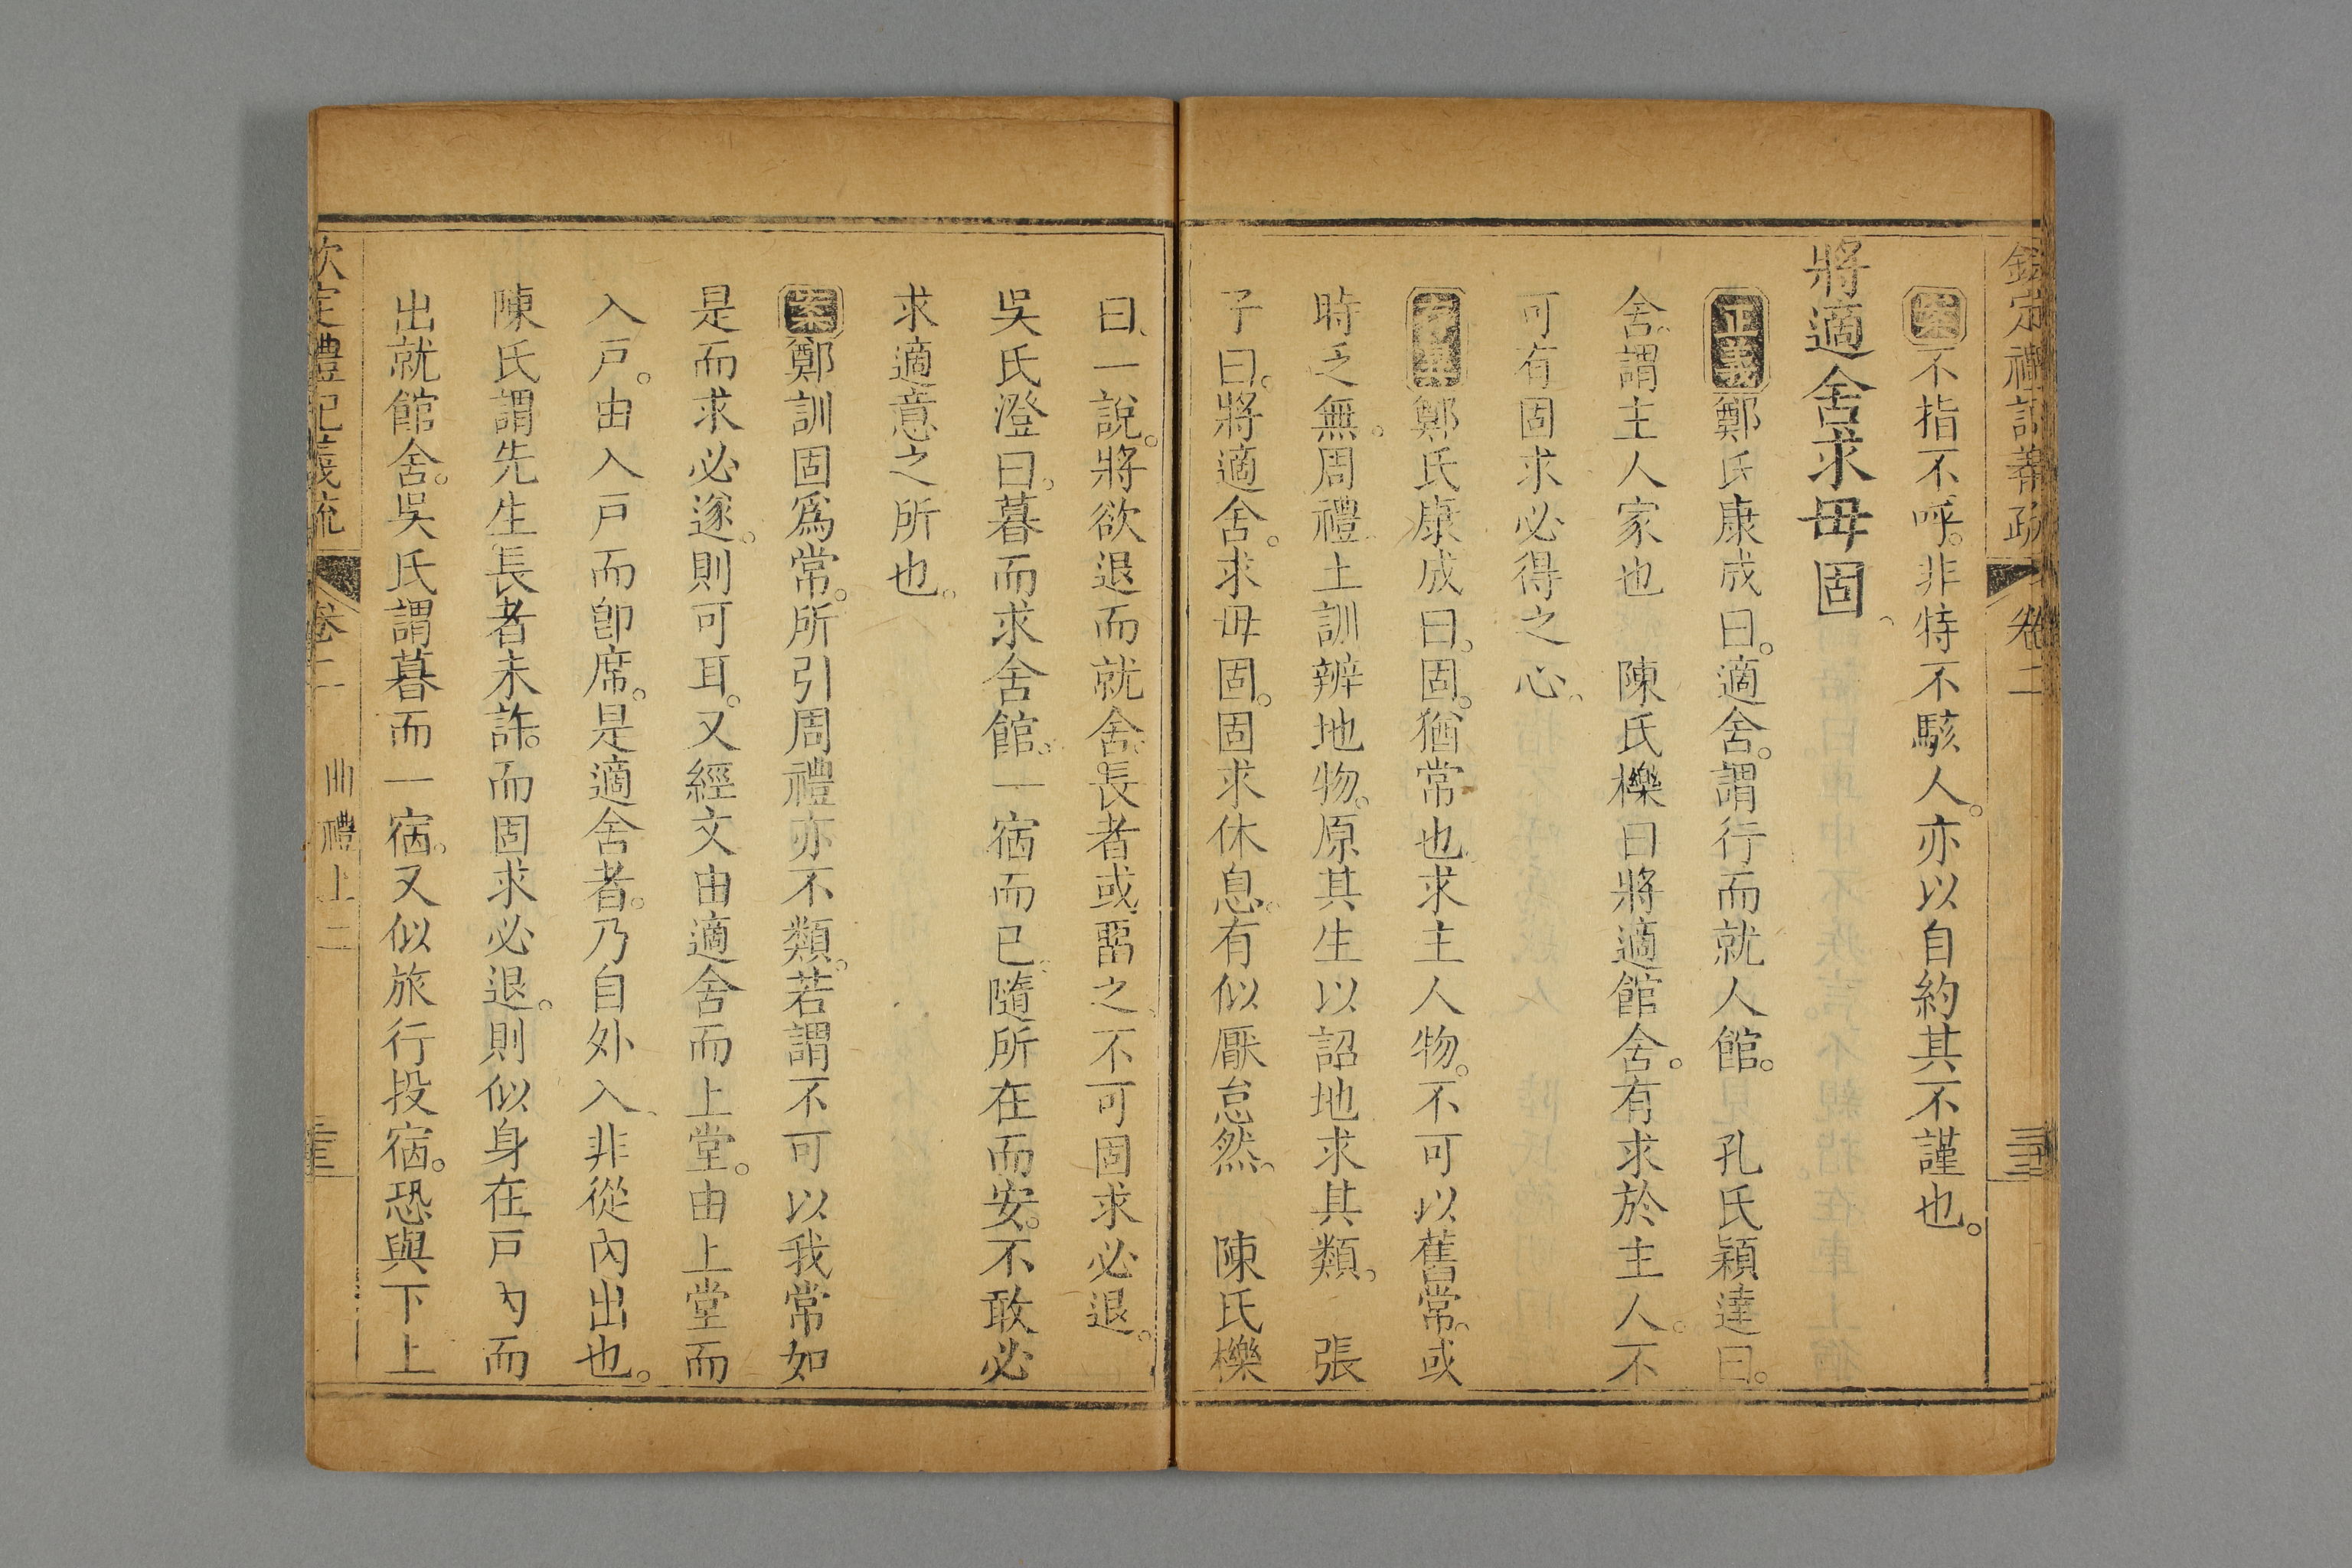 欽定禮記義疏 卷二
案不指不呼。非特不駭人。亦以自約其不謹也。
將適舍求毋固
正義鄭氏康成曰。適舍。謂行而就人館。 孔氏穎達曰。
舍。謂主人家也 陳氏櫟曰將適館舍。有求於主人。不
可有固求必得之心。
存異鄭氏康成曰。固。猶常也。求主人物。不可以舊常。或
時乏無。周禮土訓辨地物。原其生以詔地求其類。 張
子曰。將適舍。求毋固。固求休息。有似厭怠然。 陳氏櫟
曰、一說。將欲退而就舍。長者或畱之、不可固求必退。
吳氏澄曰。暮而求舍館。一宿而已。隨所在而安。不敢必
求適意之所也。
案鄭訓固爲常。所引周禮亦不類。若謂不可以我常如
是而求必遂。則可耳。又經文由適舍而上堂。由上堂而
入戸。由入戸而卽席。是適舍者。乃自外入、非從內出也。
陳氏謂先生長者未許。而固求必退。則似身在戸內而
出就館舍。吳氏謂暮而一宿。又似旅行投宿。恐與下上
欽定禮記義疏 卷二 曲禮上二